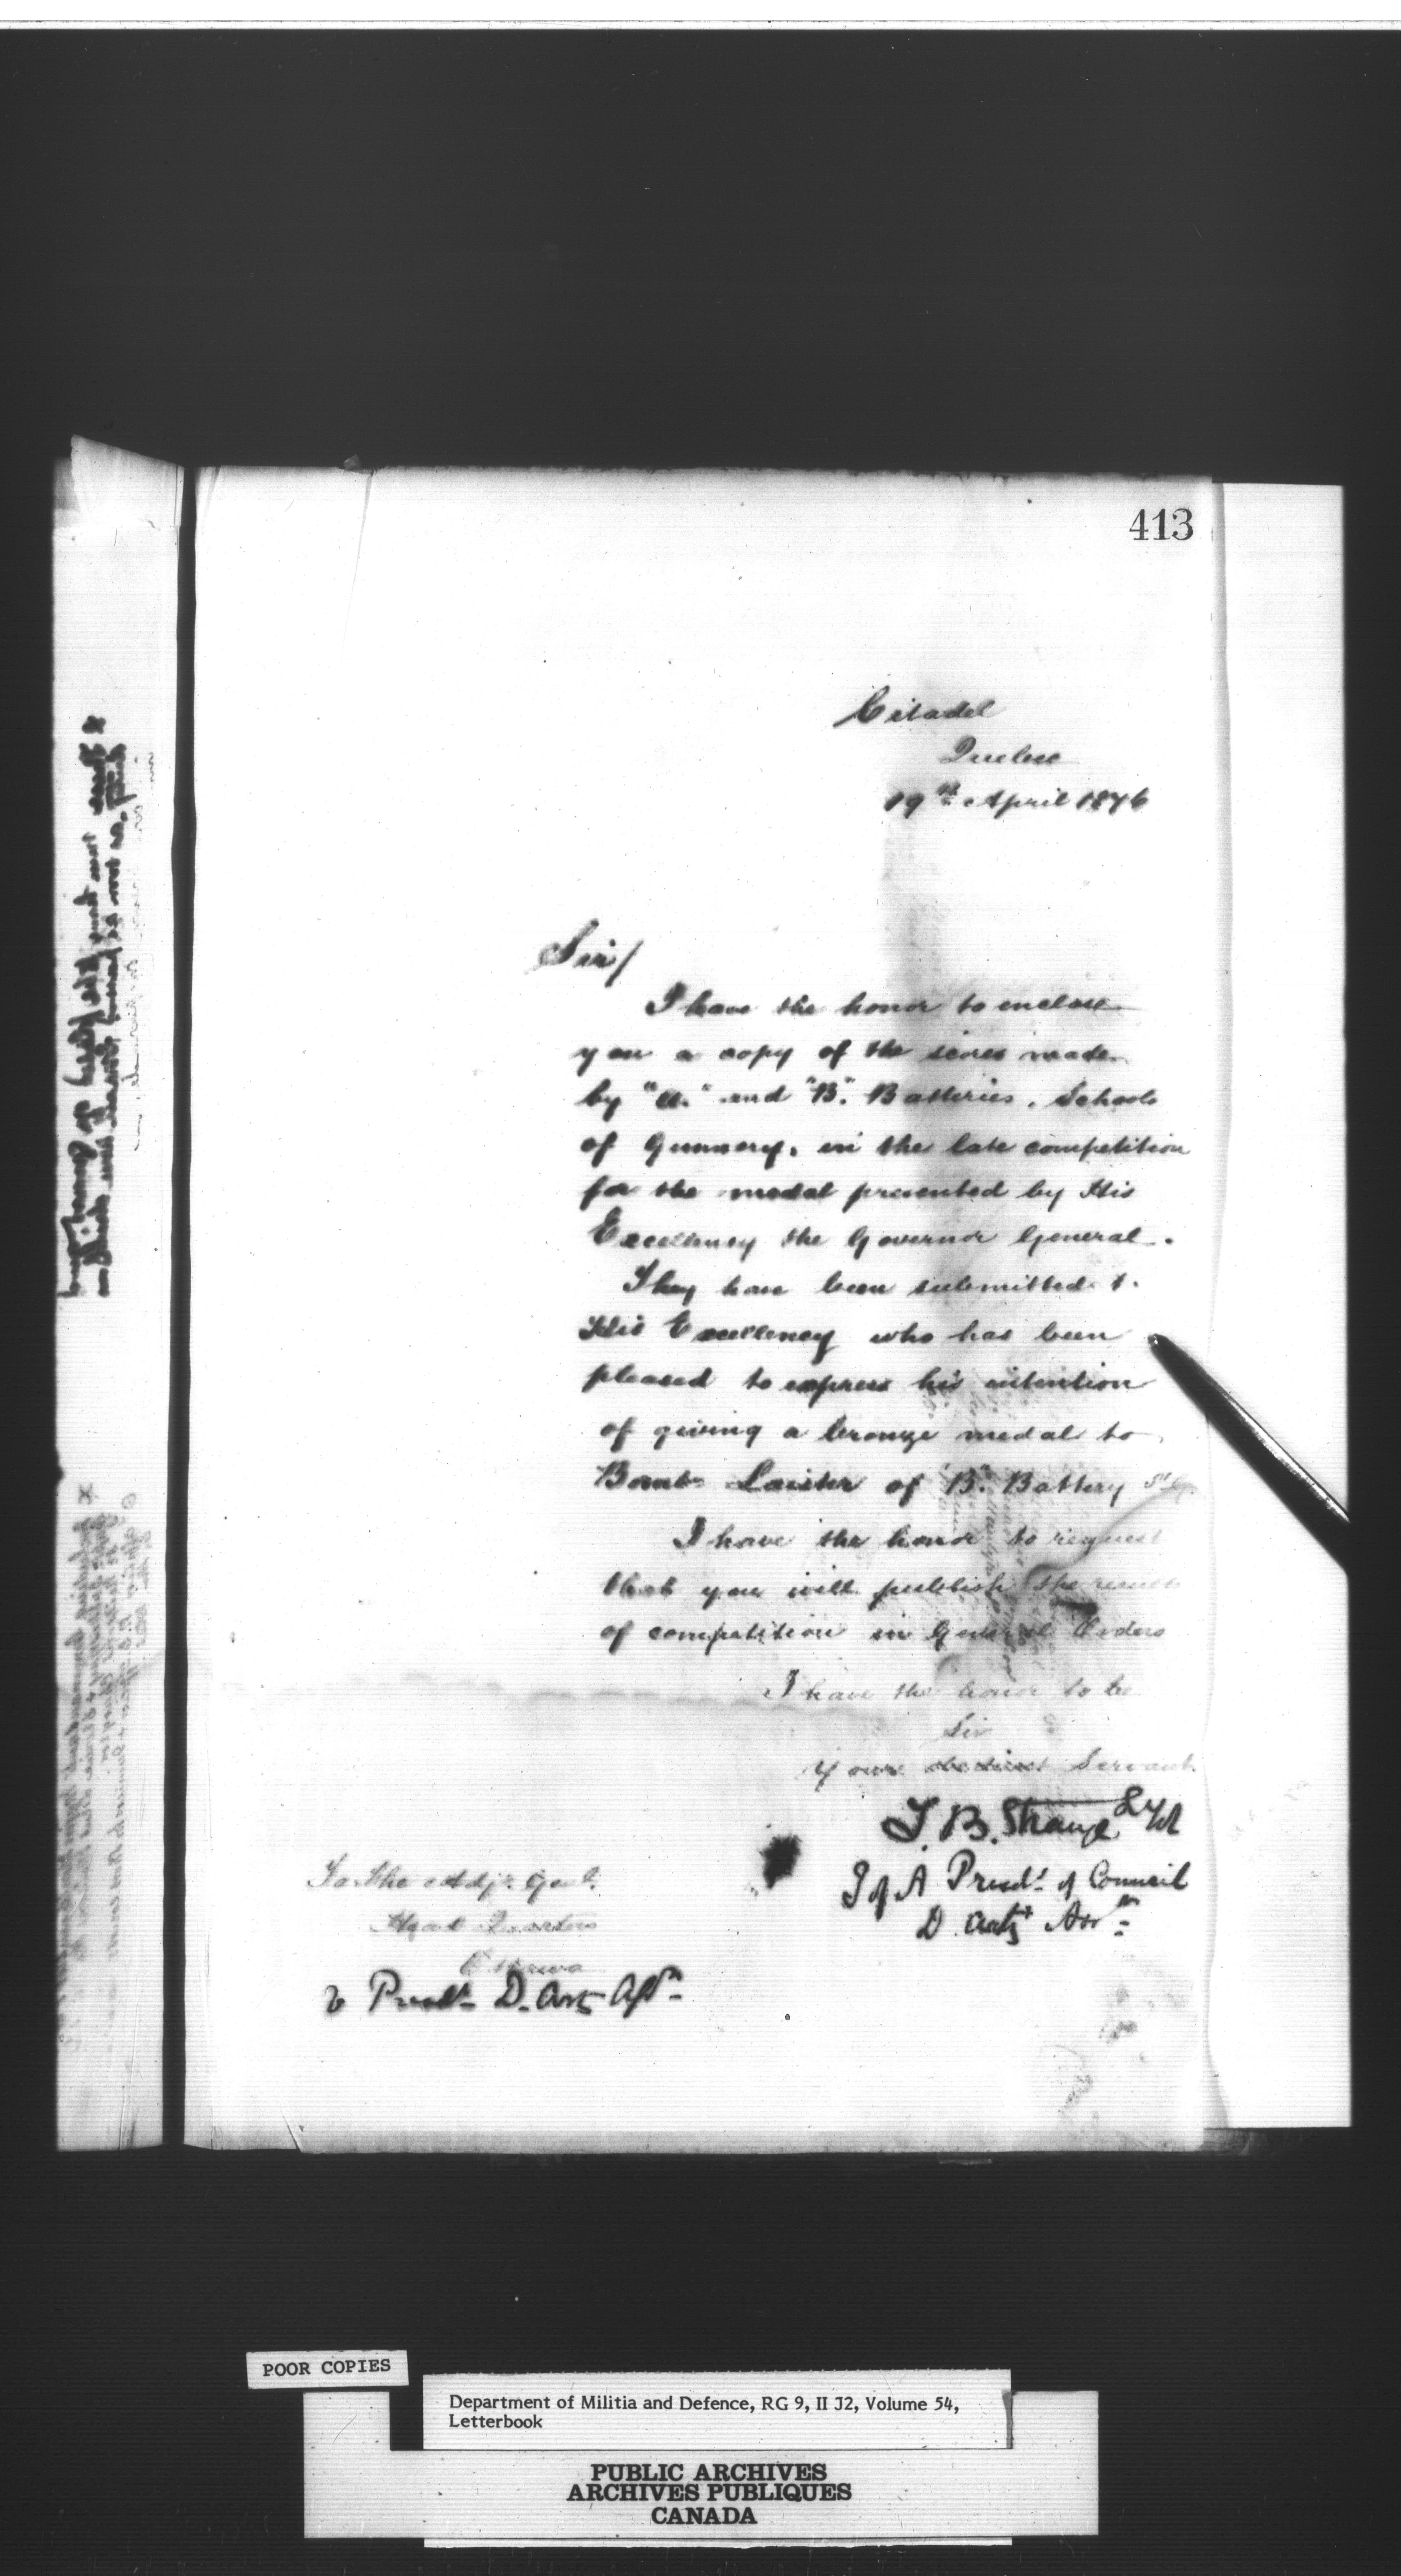 413
Citadel
Quebec
19th April 1876
Sir/
I have the honor to enclose
you a copy of the scores made
by "A." and "B." Batteries, Schools
of Gunnery, in the late competition
for the medal presented by His
Excellency the Governor General.
They have been submitted to
His Excellency who has been
pleased to express his intention
of giving a bronze medal to
Bomb. Laister of "B." Battery
I have the honor to request
that you will publish the result
of competition in General Orders
I have the honor to be
Sir
Your obedient Servant
T. B. Strange Lt Col
I of A Presdt. of Council
D. Arty Assn.
To The Adjt. Genl.
Head Quarters
Ottawa
Presdt. D. Art Assn.
POOR COPIES
Department of Militia and Defence, RG 9, II J2, Volume 54,
Letterbook
PUBLIC ARCHIVES
ARCHIVES PUBLIQUES
CANADA